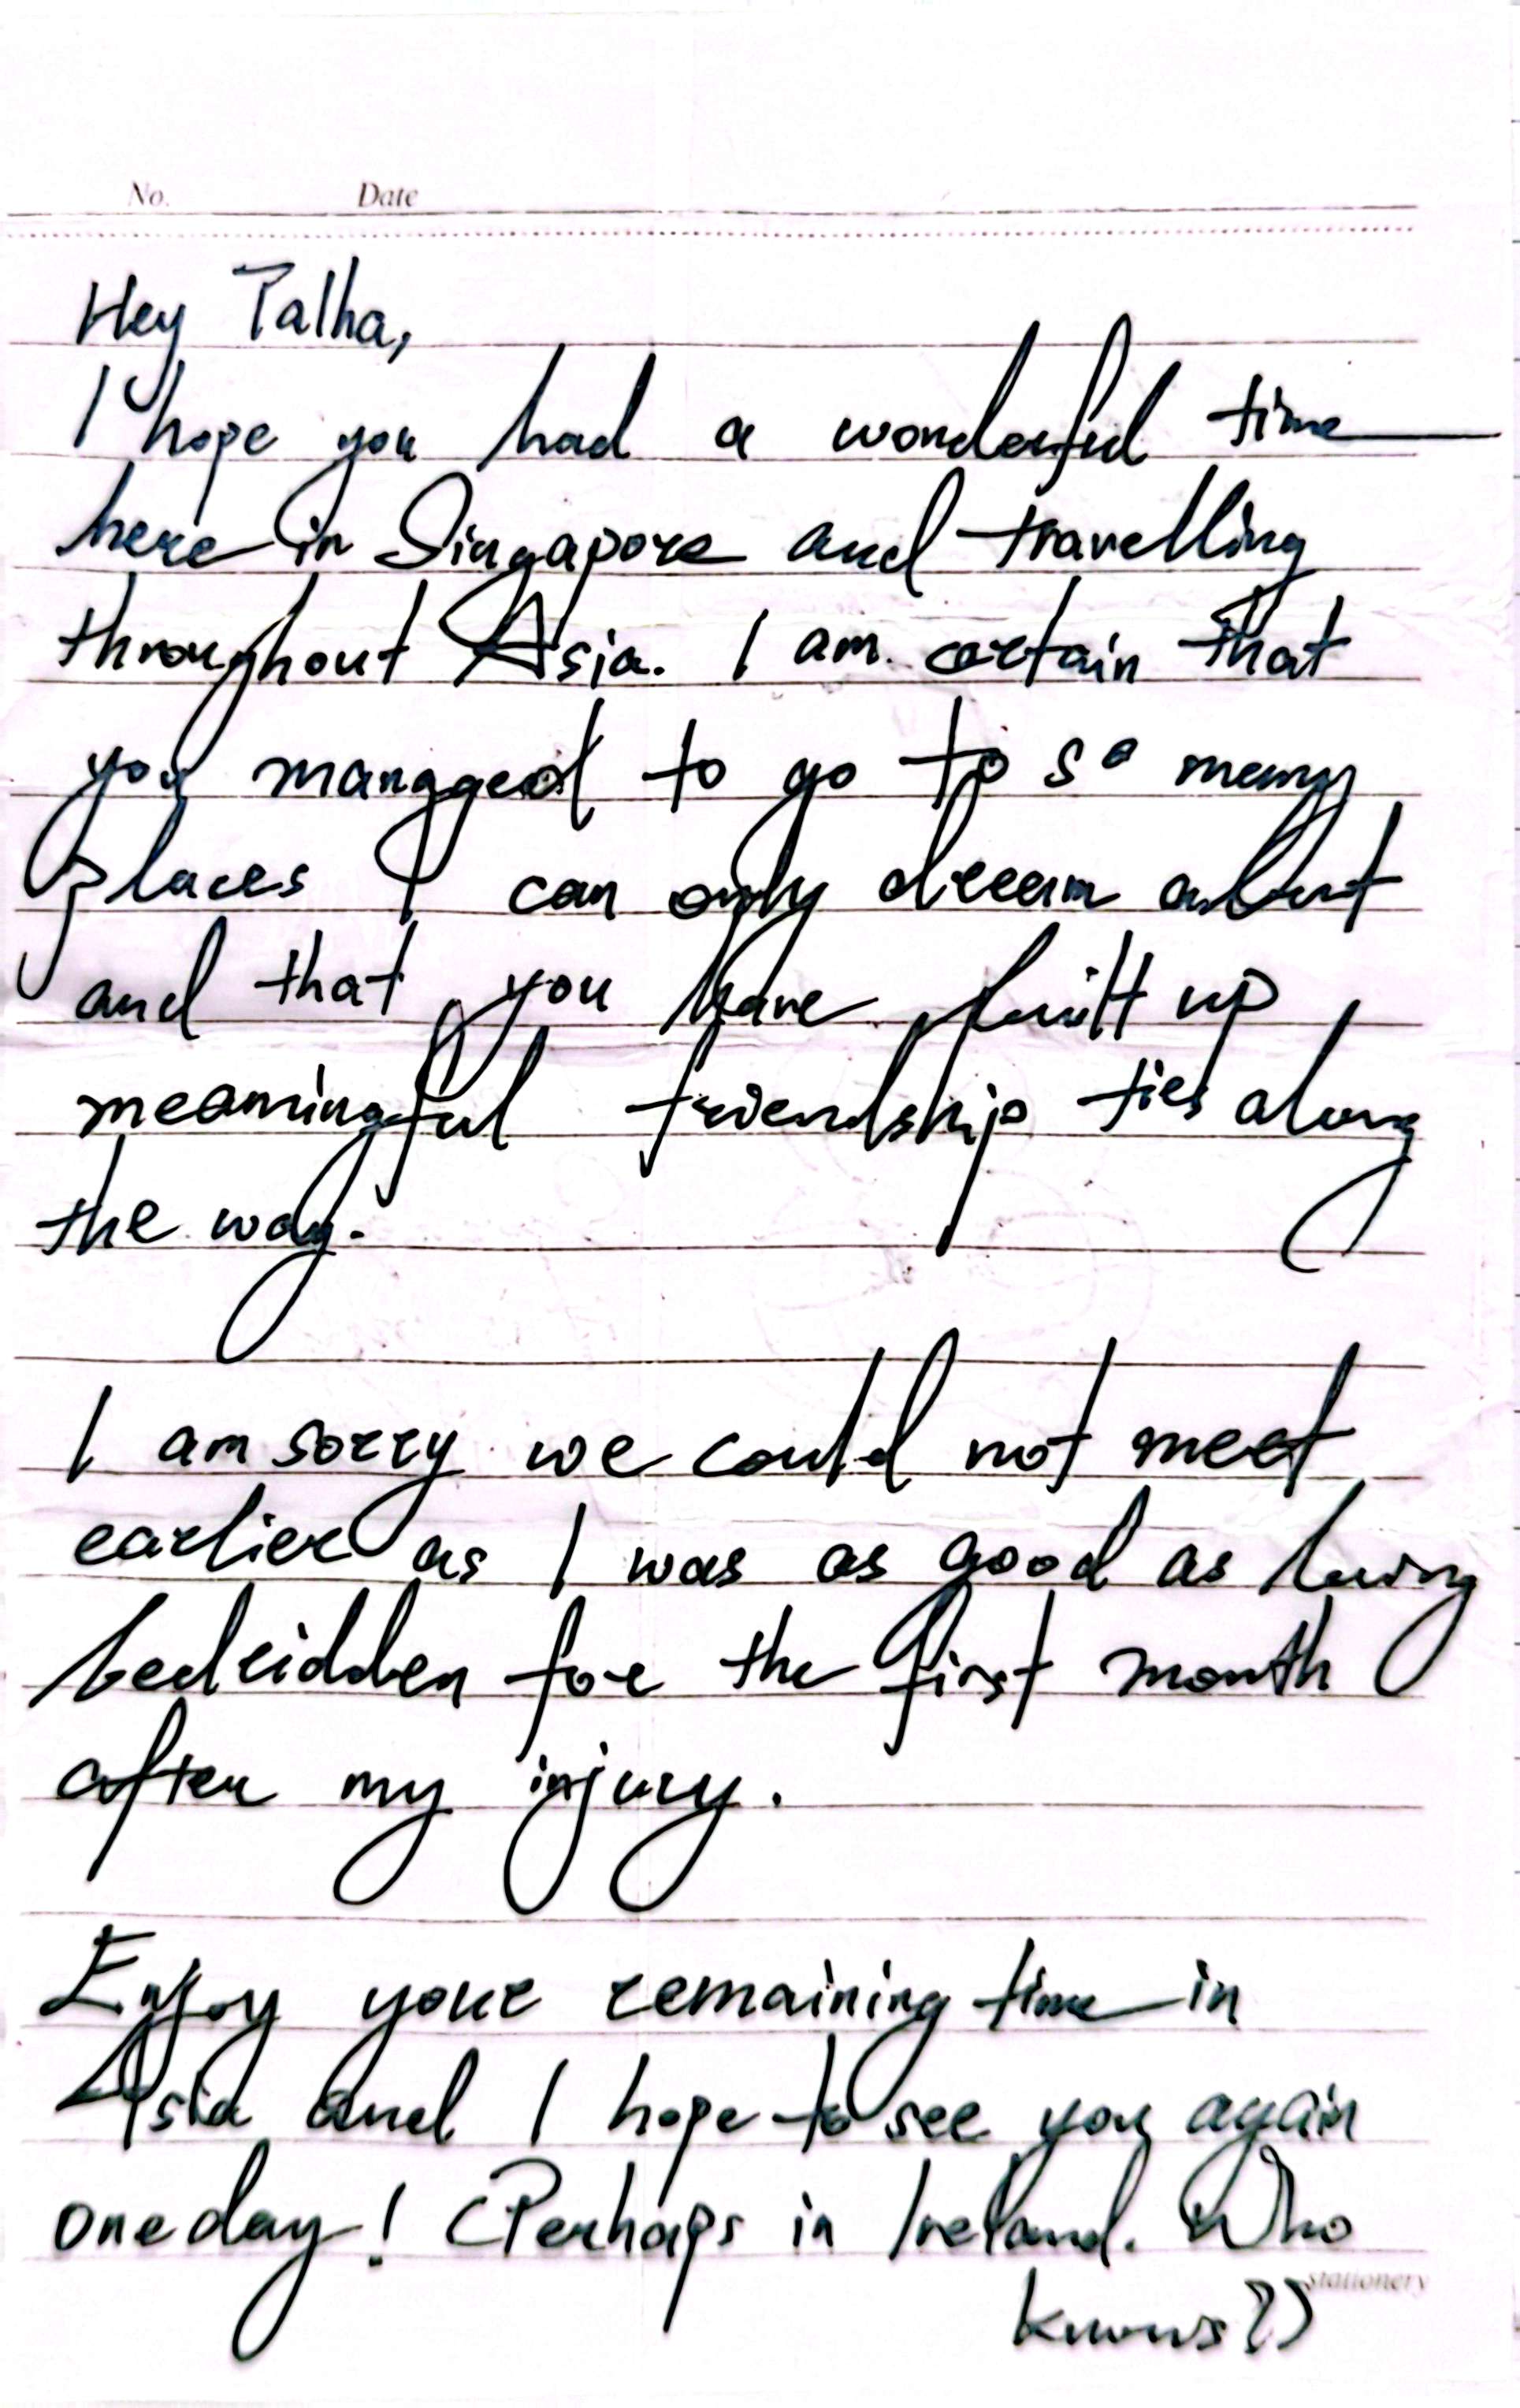 No. Date
Hey Talha,
I hope you had a wonderful time
here in Singapore and travelling
throughout Asia. I am certain that
you managed to go to so many
places I can only dream about
and that you have built up
meaningful friendship ties along
the way.
I am sorry we could not meet
earlier as I was as good as being
bedridden for the first month
after my injury.
Enjoy your remaining time in
Asia and I hope to see you again
one day! (Perhaps in Ireland. Who
stationery
knows?)